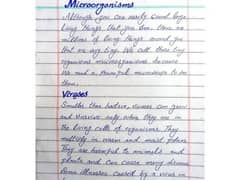 Microorganisms
Although you can easily count large
living things that you see, there are
millions of living things around you
that are very tiny. We call these tiny
organisms microorganisms because
We need a powerful microscope to see
them.
Viruses
Smaller than bacteria, viruses can grow
and survive only when they are in
the living cells of organisms. They
multiply in warm and moist places.
They are harmful to animals and
plants and can cause many diseases
Some illnesses caused by a virus in